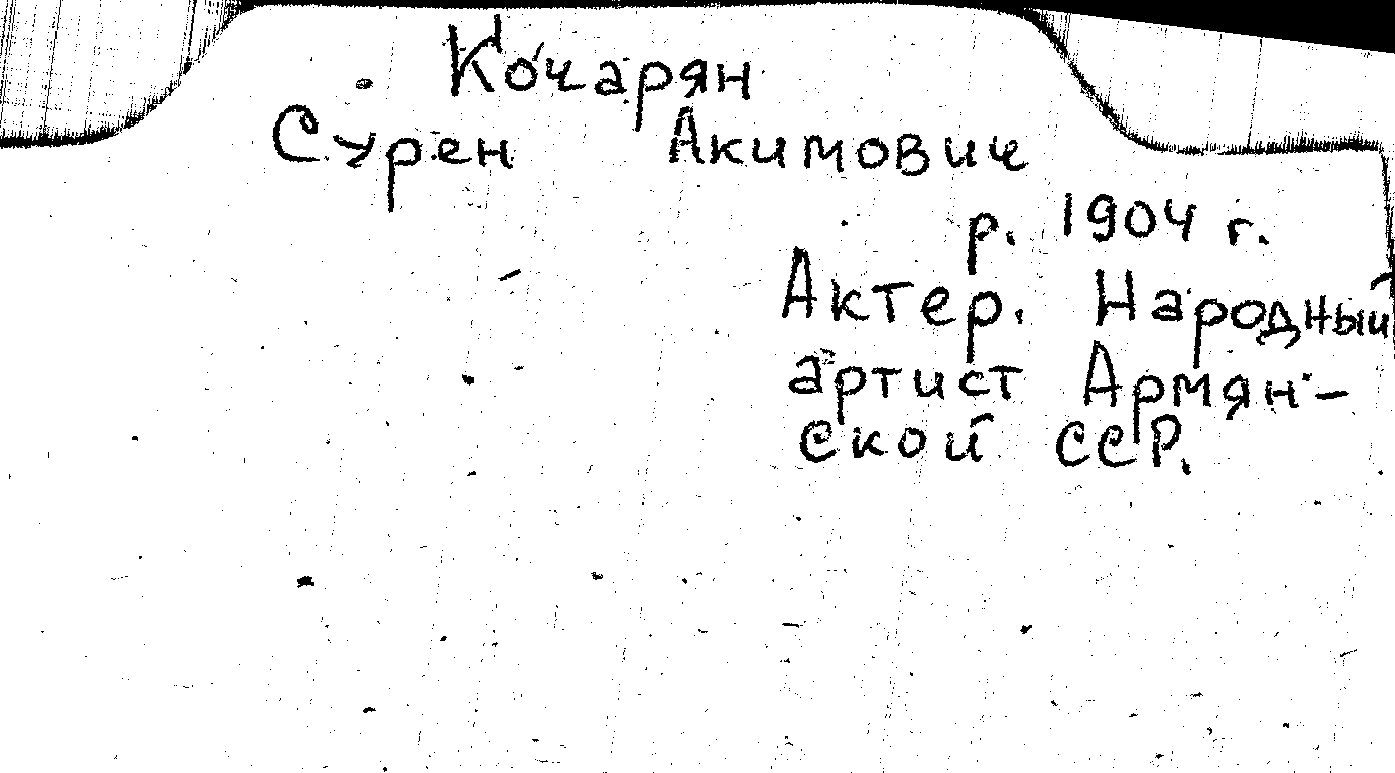 Кочарян
Сурен Акимович
р. 1904 г.
Актер. Народный
артист Армян-
ской ССР.